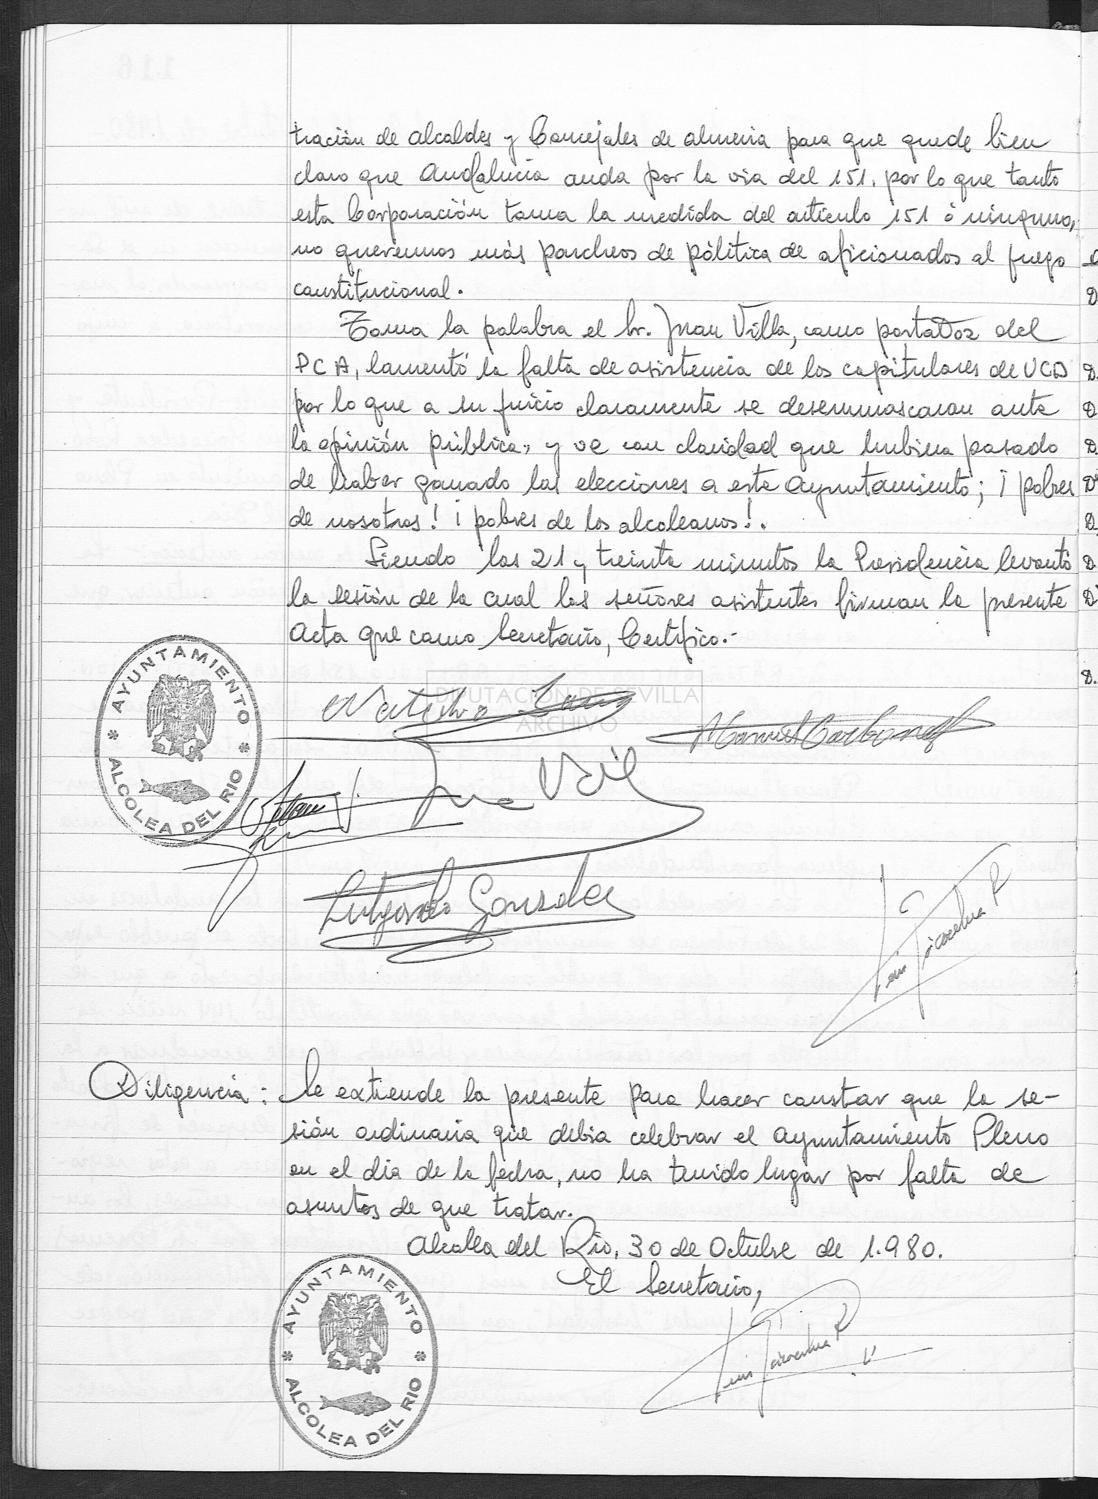 tración de alcaldes y Concejales de almeria para que quede bien
claro que Andalucia anda por la via del 151, por lo que tanto
esta Corporación toma la medida del articulo 151 ó ninguno,
no queremos más parcheos de pólitica de aficionados al juego
constitucional.
Toma la palabra el Sr. Juan Villa, como portavoz del
PCA, lamentó la falta de asistencia de los capitulares de UCD
por lo que a su juicio claramente se desenmascaran ante
la opinión pública, y ve con claridad que hubiera pasado
de haber ganado las elecciones a este Ayuntamiento; ¡ pobres
de nosotros! ¡ pobres de los alcoleanos!.
Siendo las 21 y treinta minutos la Presidencia levantó
la sesión de la cual los señores asistentes firman la presente
Acta que como Secretario, Certifico.-
AYUNTAMIENTO
ALCOLEA DEL RIO
DIPUTACIÓN DE SEVILLA
ARCHIVO
Manuel Carbonell
Lutgardo Gonzalez
Diligencia: Se extiende la presente para hacer constar que la se-
sión ordinaria que debia celebrar el Ayuntamiento Pleno
en el dia de la fecha, no ha tenido lugar por falta de
asuntos de que tratar.
Alcolea del Rio, 30 de Octubre de 1.980.
El Secretario,
AYUNTAMIENTO
ALCOLEA DEL RIO